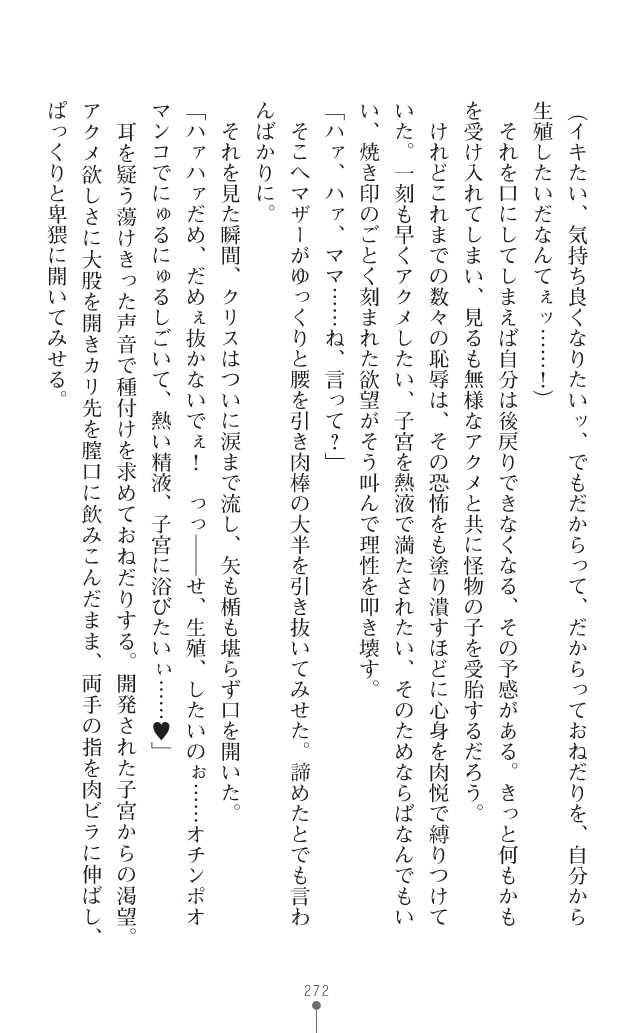 （イキたい、気持ち良くなりたいッ、でもだからって、だからっておねだりを、自分から
生殖したいだなんてぇッ……！）
　それを口にしてしまえば自分は後戻りできなくなる、その予感がある。きっと何もかも
を受け入れてしまい、見るも無様なアクメと共に怪物の子を受胎するだろう。
　けれどこれまでの数々の恥辱は、その恐怖をも塗り潰すほどに心身を肉悦で縛りつけて
いた。一刻も早くアクメしたい、子宮を熱液で満たされたい、そのためならばなんでもい
い、焼き印のごとく刻まれた欲望がそう叫んで理性を叩き壊す。
「ハァ、ハァ、ママ……ね、言って？」
　そこへマザーがゆっくりと腰を引き肉棒の大半を引き抜いてみせた。諦めたとでも言わ
んばかりに。
　それを見た瞬間、クリスはついに涙まで流し、矢も楯も堪らず口を開いた。
「ハァハァだめ、だめぇ抜かないでぇ！　っっ――せ、生殖、したいのぉ……オチンポオ
マンコでにゅるにゅるしごいて、熱い精液、子宮に浴びたいぃ……♥」
　耳を疑う蕩けきった声音で種付けを求めておねだりする。開発された子宮からの渇望。
アクメ欲しさに大股を開きカリ先を膣口に飲みこんだまま、両手の指を肉ビラに伸ばし、
ぱっくりと卑猥に開いてみせる。
272